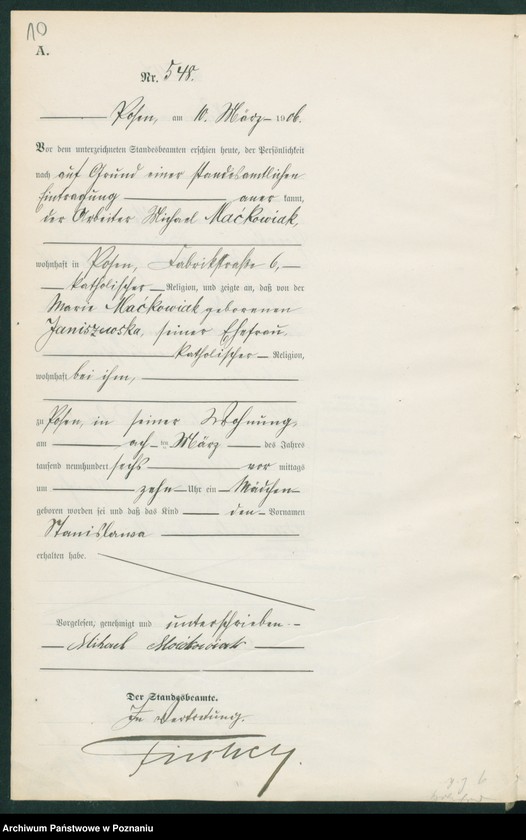 10
A.
Nr. 548.
Posen, am 10. März 1906.
Vor dem unterzeichneten Standesbeamten erschien heute, der Persönlichkeit
nach auf Grund einer standesamtlichen
Eintragung anerkannt,
der Arbeiter Michael Maćkowiak,
wohnhaft in Posen, Fabrikstraße 6,
katholischer Religion, und zeigte an, daß von der
Marie Maćkowiak geborenen
Janiszewska, seiner Ehefrau,
katholischer Religion,
wohnhaft bei ihm,
zu Posen, in seiner Wohnung,
am ach ten März des Jahres
tausend neunhundert sechs vor mittags
um zehn Uhr ein Mädchen
geboren worden sei und daß das Kind den Vornamen
Stanislawa
erhalten habe.
Vorgelesen, genehmigt und unterschrieben.
Mihael Maćkowiak
Der Standesbeamte.
In Vertretung.
Archiwum Państwowe w Poznaniu